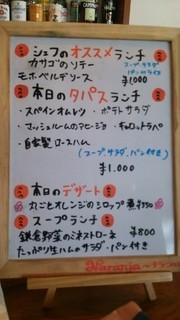 シェフのオススメランチ
カサゴのソテー
スープサラダ
パン or ライス
モホベルデソース
¥1000
本日のタパスランチ
・スペインオムレツ ・ポテトサラダ
・マッシュルームのアヒージョ ・キャロットラペ
・自家製ロースハム
(スープ、サラダ、パン付き)
¥1.000
本日のデザート
丸ごとオレンジのシロップ煮 ¥350
スープランチ
鎌倉野菜のミネストローネ ¥800
たっぷり生ハムのサラダ・パン付き
Naranja